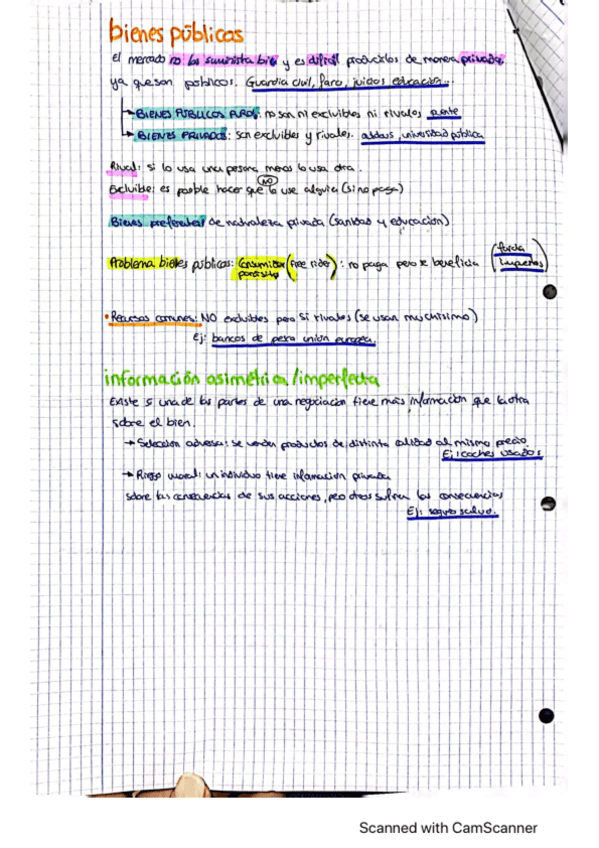 bienes públicos
el mercado no los suministra bien y es difícil producirlos de manera privada
ya que son públicos. Guardia civil, faro, juicios educación...
BIENES PÚBLICOS PUROS: no son ni excluibles ni rivales puente
BIENES PRIVADOS: son excluibles y rivales. universidad pública
Rival: si lo usa una persona menos lo usa otra.
Excluible: es posible hacer que NO lo use alguien (si no paga)
Bienes preferentes de naturaleza privada (sanidad y educación)
Problema bienes públicos: Consumidor parásito (free rider): no paga pero se beneficia
Recursos comunes: NO excluibles pero sí rivales (se usan muchísimo)
Ej: bancos de pesca unión europea.
información asimétrica/imperfecta
Existe si una de las partes de una negociación tiene más información que la otra
sobre el bien.
→ Selección adversa: se venden productos de distinta calidad al mismo precio.
Ej: coches usados
→ Riesgo moral: un individuo tiene información privada
sobre las consecuencias de sus acciones, pero otros sufren las consecuencias
Ej: seguro salud.
Scanned with CamScanner